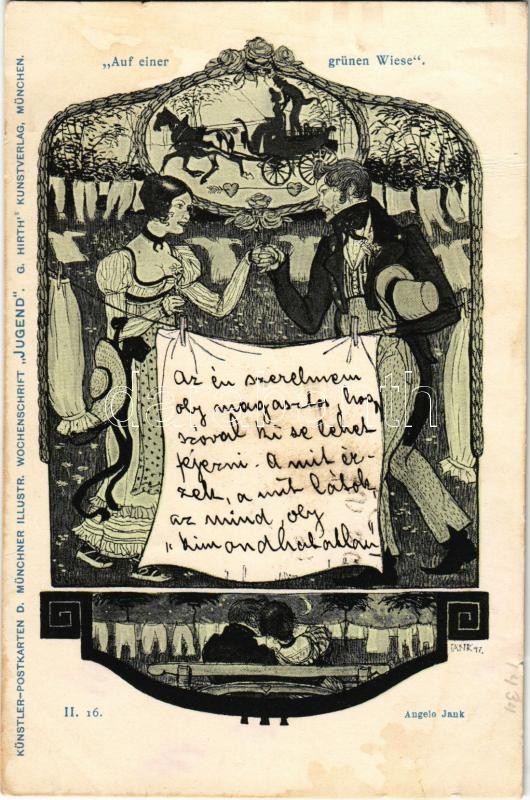 „Auf einer grünen Wiese“.
KÜNSTLER-POSTKARTEN D. MÜNCHNER ILLUSTR. WOCHENSCHRIFT „JUGEND“. G. HIRTH'S KUNSTVERLAG, MÜNCHEN.
Az én szerelmem
oly magasztos, hog
szóval ki se lehet
fejezni. A mit ér-
zek, a mit látok,
az mind oly
„kimondhatatlan“
JANK 97.
II. 16.
Angelo Jank
1434